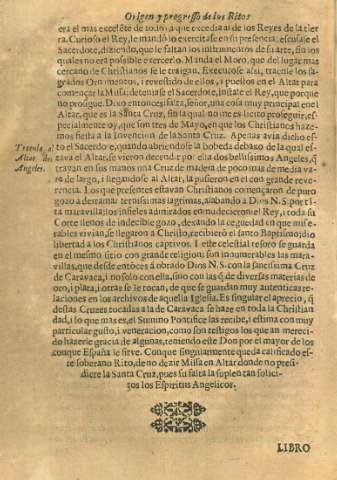 Origen y progresso de los Ritos
era el mas excelēte de todos, a que excedia a de los Reyes de la tier
ra. Curioso el Rey, le mandò lo exercitasse en su presencia; escusase el
Sacerdote, diziendo, que le faltan los instrumentos de su arte, sin los
quales no era possible exercerlo. Manda el Moro, que del lugar mas
cercano de Christianos se le traigan. Executose assi, traenle los sa-
grados Ornamentos, i revestido de ellos, i puestos en el Altar para
començar la Missa; detenìase el Sacerdote, instale el Rey, que porque
no prosigue. Dixo entonces: falta, señor, una cosa muy principal en el
Altar, que es la Santa Cruz, sin la qual no me es licito proseguir, es-
pecialmente oy, que son tres de Mayo, en que los Christianos haze-
mos fiesta a la Invencion de la Santa Cruz. Apenas avia dicho es-
to el Sacerdote, quando abriendose la bobeda debaxo de la qual es-
tava el Altar, se vieron decender por ella dos bellissimos Angeles, q̃
travan en sus manos una Cruz de madera de poco mas de media va-
ra de largo, i llegandose al Altar, la pusieron en el con grande reve-
rencia. Los que presentes estavan Christianos començaron de puro
gozo a derramar ternissimas lagrimas, alabando a Dios N. S. por tā
ta maravilla: los infieles admirados enmudecieron: el Rey, i toda su
Corte llenos de indecible gozo, dexando la ceguedad en que mise-
rables vivian, se llegaron a Christo, recibiero el santo Baptismo; dio
libertad a los Christianos captivos. I este celestial tesoro se guarda
en el mesmo sitio con grande religion: son innumerables las mara-
villas, que desde entonces à obrado Dios N. S. con la sanctissima Cruz
de Caravaca, i no solo con ella, sino con las q̃ de diversas materias de
oro, i plata, i otras se le tocan, de que se guardan muy autenticas re-
laciones en los archivos de aquella Iglesia. Es singular el aprecio, q̃
destas Cruzes tocadas a la de Caravaca se haze en toda la Christian
dad, i lo que mas es, el Summo Pontifice las recibe, i estima con muy
particular gusto, i veneracion, como son testigos los que an mereci-
do hazerle gracia de algunas, teniendo este Don por el mayor de los
con que España le sirve. Con que singularmente queda calificado es-
te soberano Rito, de no dezir Missa en Altar donde no pre-
sidiere la Santa Cruz, pues su falta la suplen tan solici-
tos los Espiritus Angelicos.
al
Altar
Angeles.
LIBRO